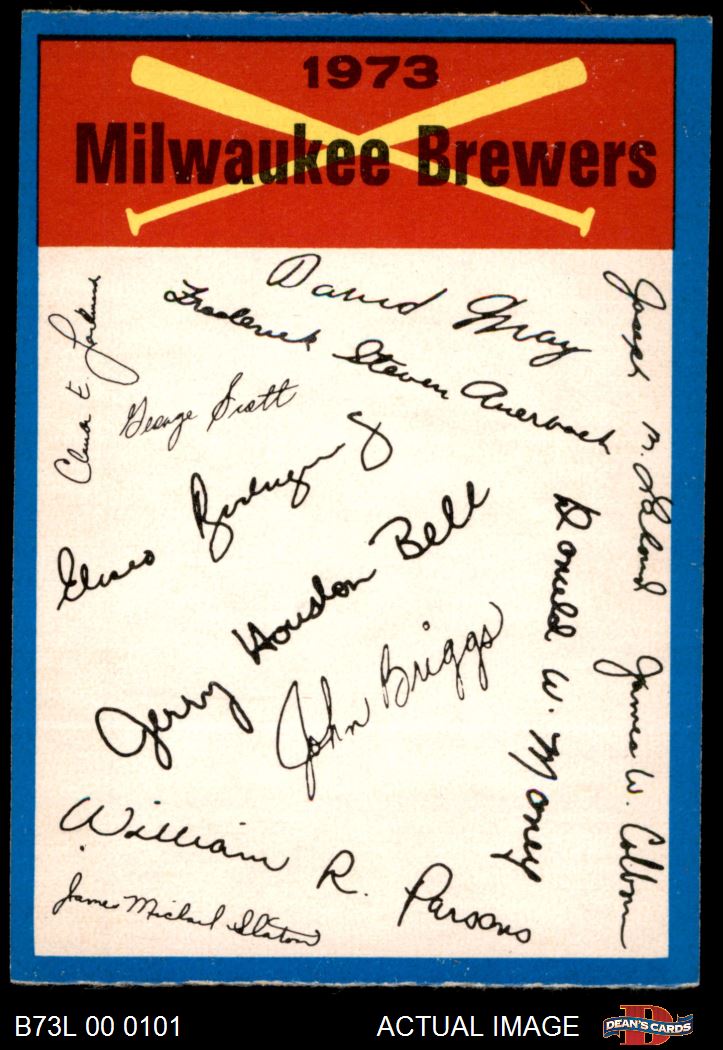 1973
Milwaukee Brewers
David Gray
Frederick Steven Auerbach
Joseph
George Scott
Eliseo Rodriguez
Jerry Houston Bell
John Briggs
Donald W. Money
James W. Colborn
William R. Parsons
James Michael Slaton
B73L 00 0101
ACTUAL IMAGE
D
DEAN'S CARDS